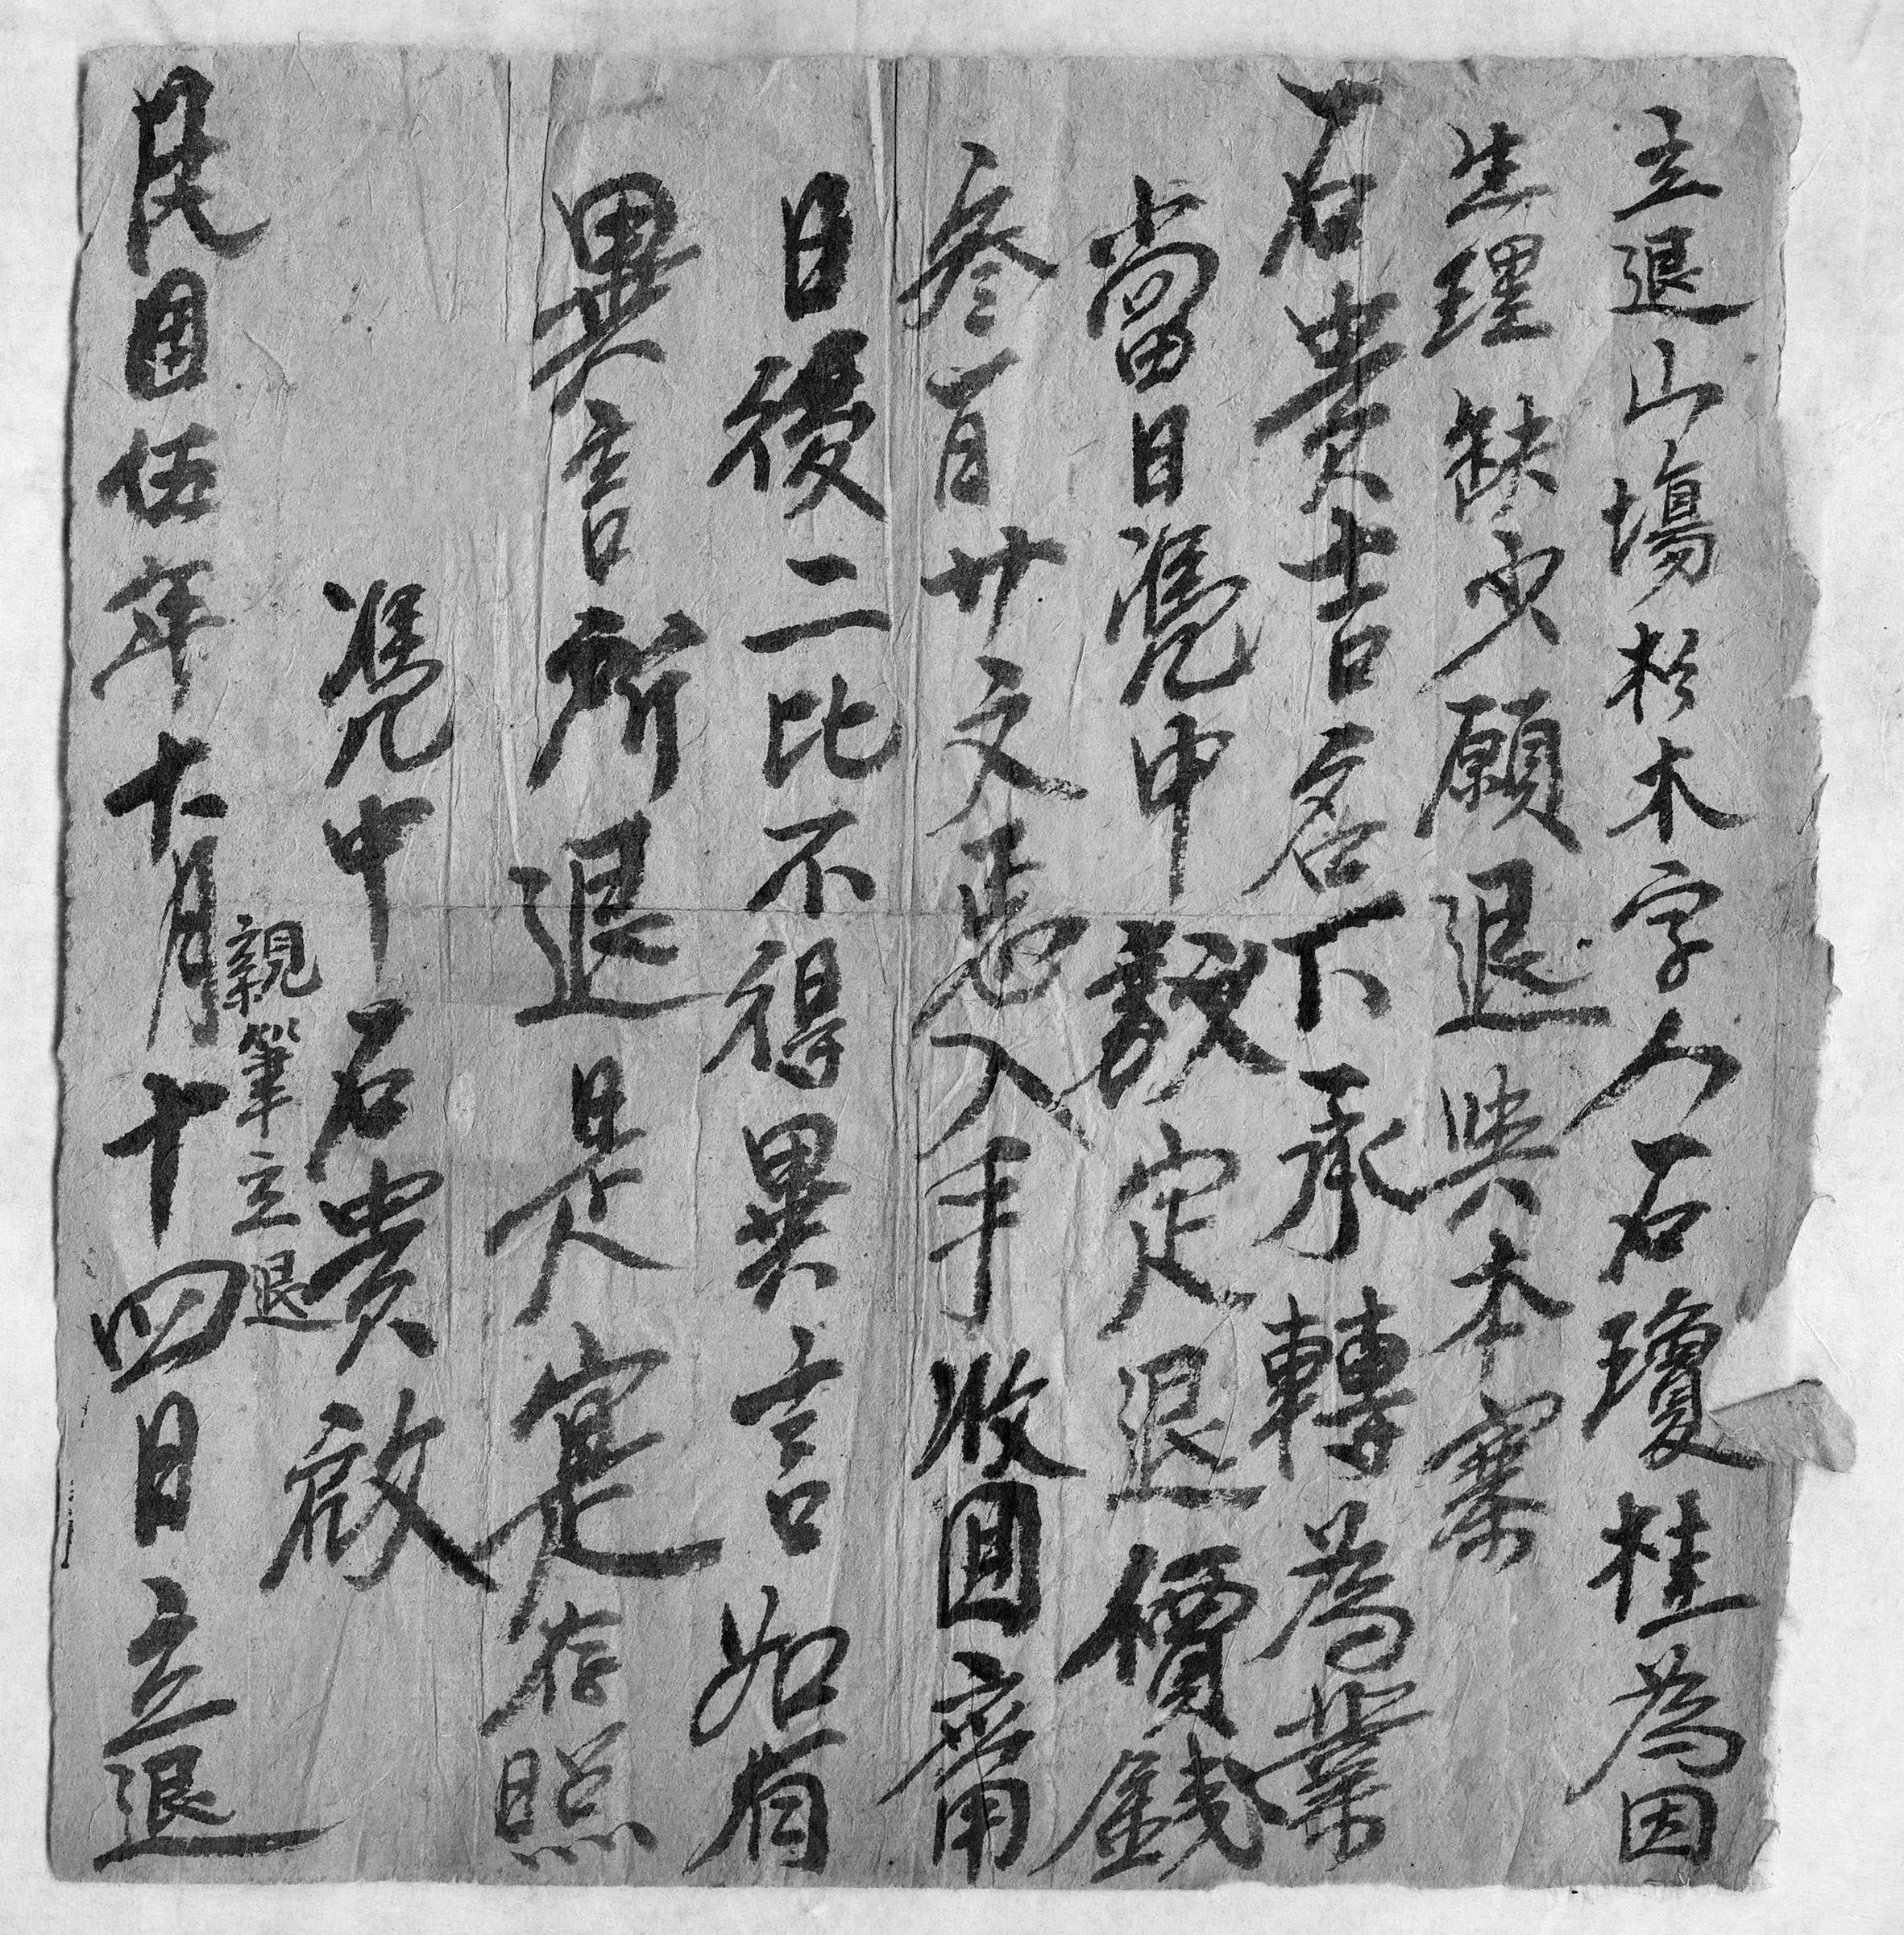 立退山塲杉木字人石瓊桂為因
生理缺少願退與本寨
石貴吉名下承轉為業
當日憑中数定退價錢
叁百廿文悉入手收囬齊用
日後二比不得異言如有
異言所退是寔存照
憑中石貴啟
親筆立退
民國伍年十月十四日立退